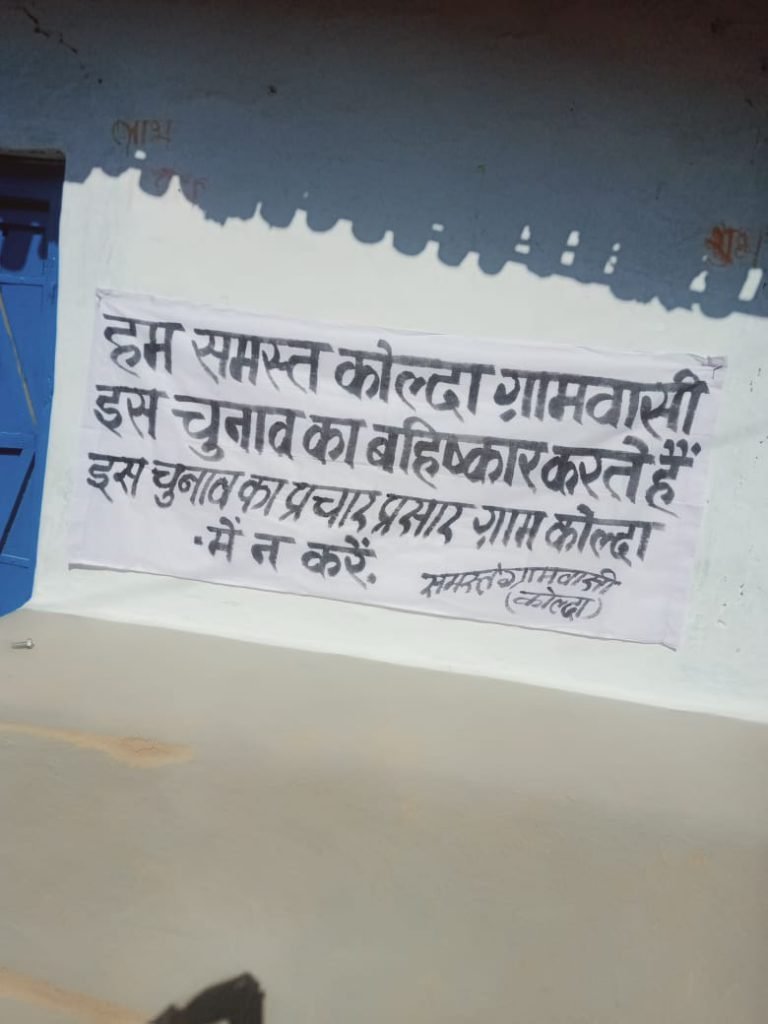 हम समस्त कोल्दा ग्रामवासी
इस चुनाव का बहिष्कार करते हैं
इस चुनाव का प्रचार प्रसार ग्राम कोल्दा
में न करें.
समस्त ग्रामवासी
(कोल्दा)